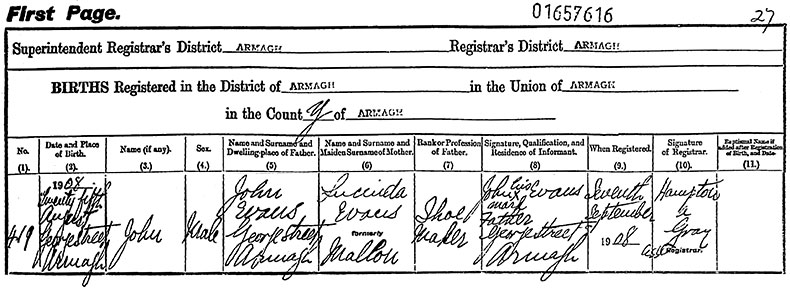 First Page. 01657616 27
Superintendent Registrar's District ARMAGH Registrar's District ARMAGH
BIRTHS Registered in the District of ARMAGH in the Union of ARMAGH
in the County of ARMAGH
No. (1).
Date and Place of Birth. (2).
Name (if any). (3.)
Sex. (4.)
Name and Surname and Dwelling-place of Father. (5)
Name and Surname and Maiden Surname of Mother. (6)
Rank or Profession of Father. (7)
Signature, Qualification, and Residence of Informant. (8)
When Registered. (9.)
Signature of Registrar. (10.)
Baptismal Name if added after Registration of Birth, and Date. (11.)
419
1908
Twenty fifth
August
George Street
Armagh
John
Male
John
Evans
George Street
Armagh
Lucinda
Evans
formerly
Mallon
Shoe
Maker
John his x mark Evans
Father
George Street
Armagh
Seventh
September
1908
Hampton
Gray
Asst Registrar.